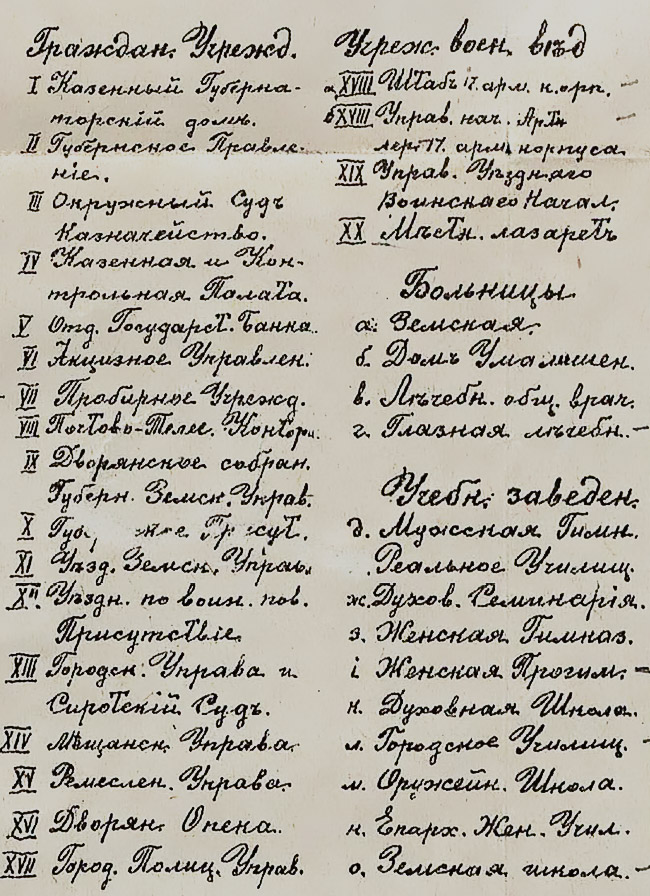 Граждан. Учрежд.
I Казенный Губерна-
торскій домъ.
II Губернское Правле-
ніе.
III Окружный Судъ
Казначейство.
IV Казенная и Кон-
трольная Палата.
V Отд. Государст. Банка.
VI Акцизное Управлен.
VII Пробирное Учрежд.
VIII Почтово-Телег. Контора.
IX Дворянское собран.
Губерн. Земск. Управ.
X Присут.
XI Уѣзд. Земск. Управ.
XII. Уѣздн. по воин. пов.
Присутствіе.
XIII Городск. Управа и
Сиротскій Судъ.
XIV Мѣщанск. Управа.
XV Ремеслен. Управа.
XVI Дворян. Опека.
XVII Город. Полиц. Управ.
Учреж. воен. вѣд
а XVIII Штабъ 17. арм. корп.
б XVIII Управ. нач. Артил
лер. 17. арм. корпуса
XIX Управ. Уѣзднаго
Воинскаго Начал.
XX Мѣстн. лазаретъ
Больницы
а. Земская.
б. Домъ Умалишен.
в. Лѣчебн. общ. врач.
г. Глазная лѣчебн.
Учебн. заведен.
д. Мужская Гимн.
Реальное Училищ.
ж. Духов. Семинарія.
з. Женская Гимназ.
і Женская Прогим.
к. Духовная Школа.
л. Городское Училищ.
м. Оружейн. Школа.
н. Епарх. Жен. Учил.
о. Земская школа.